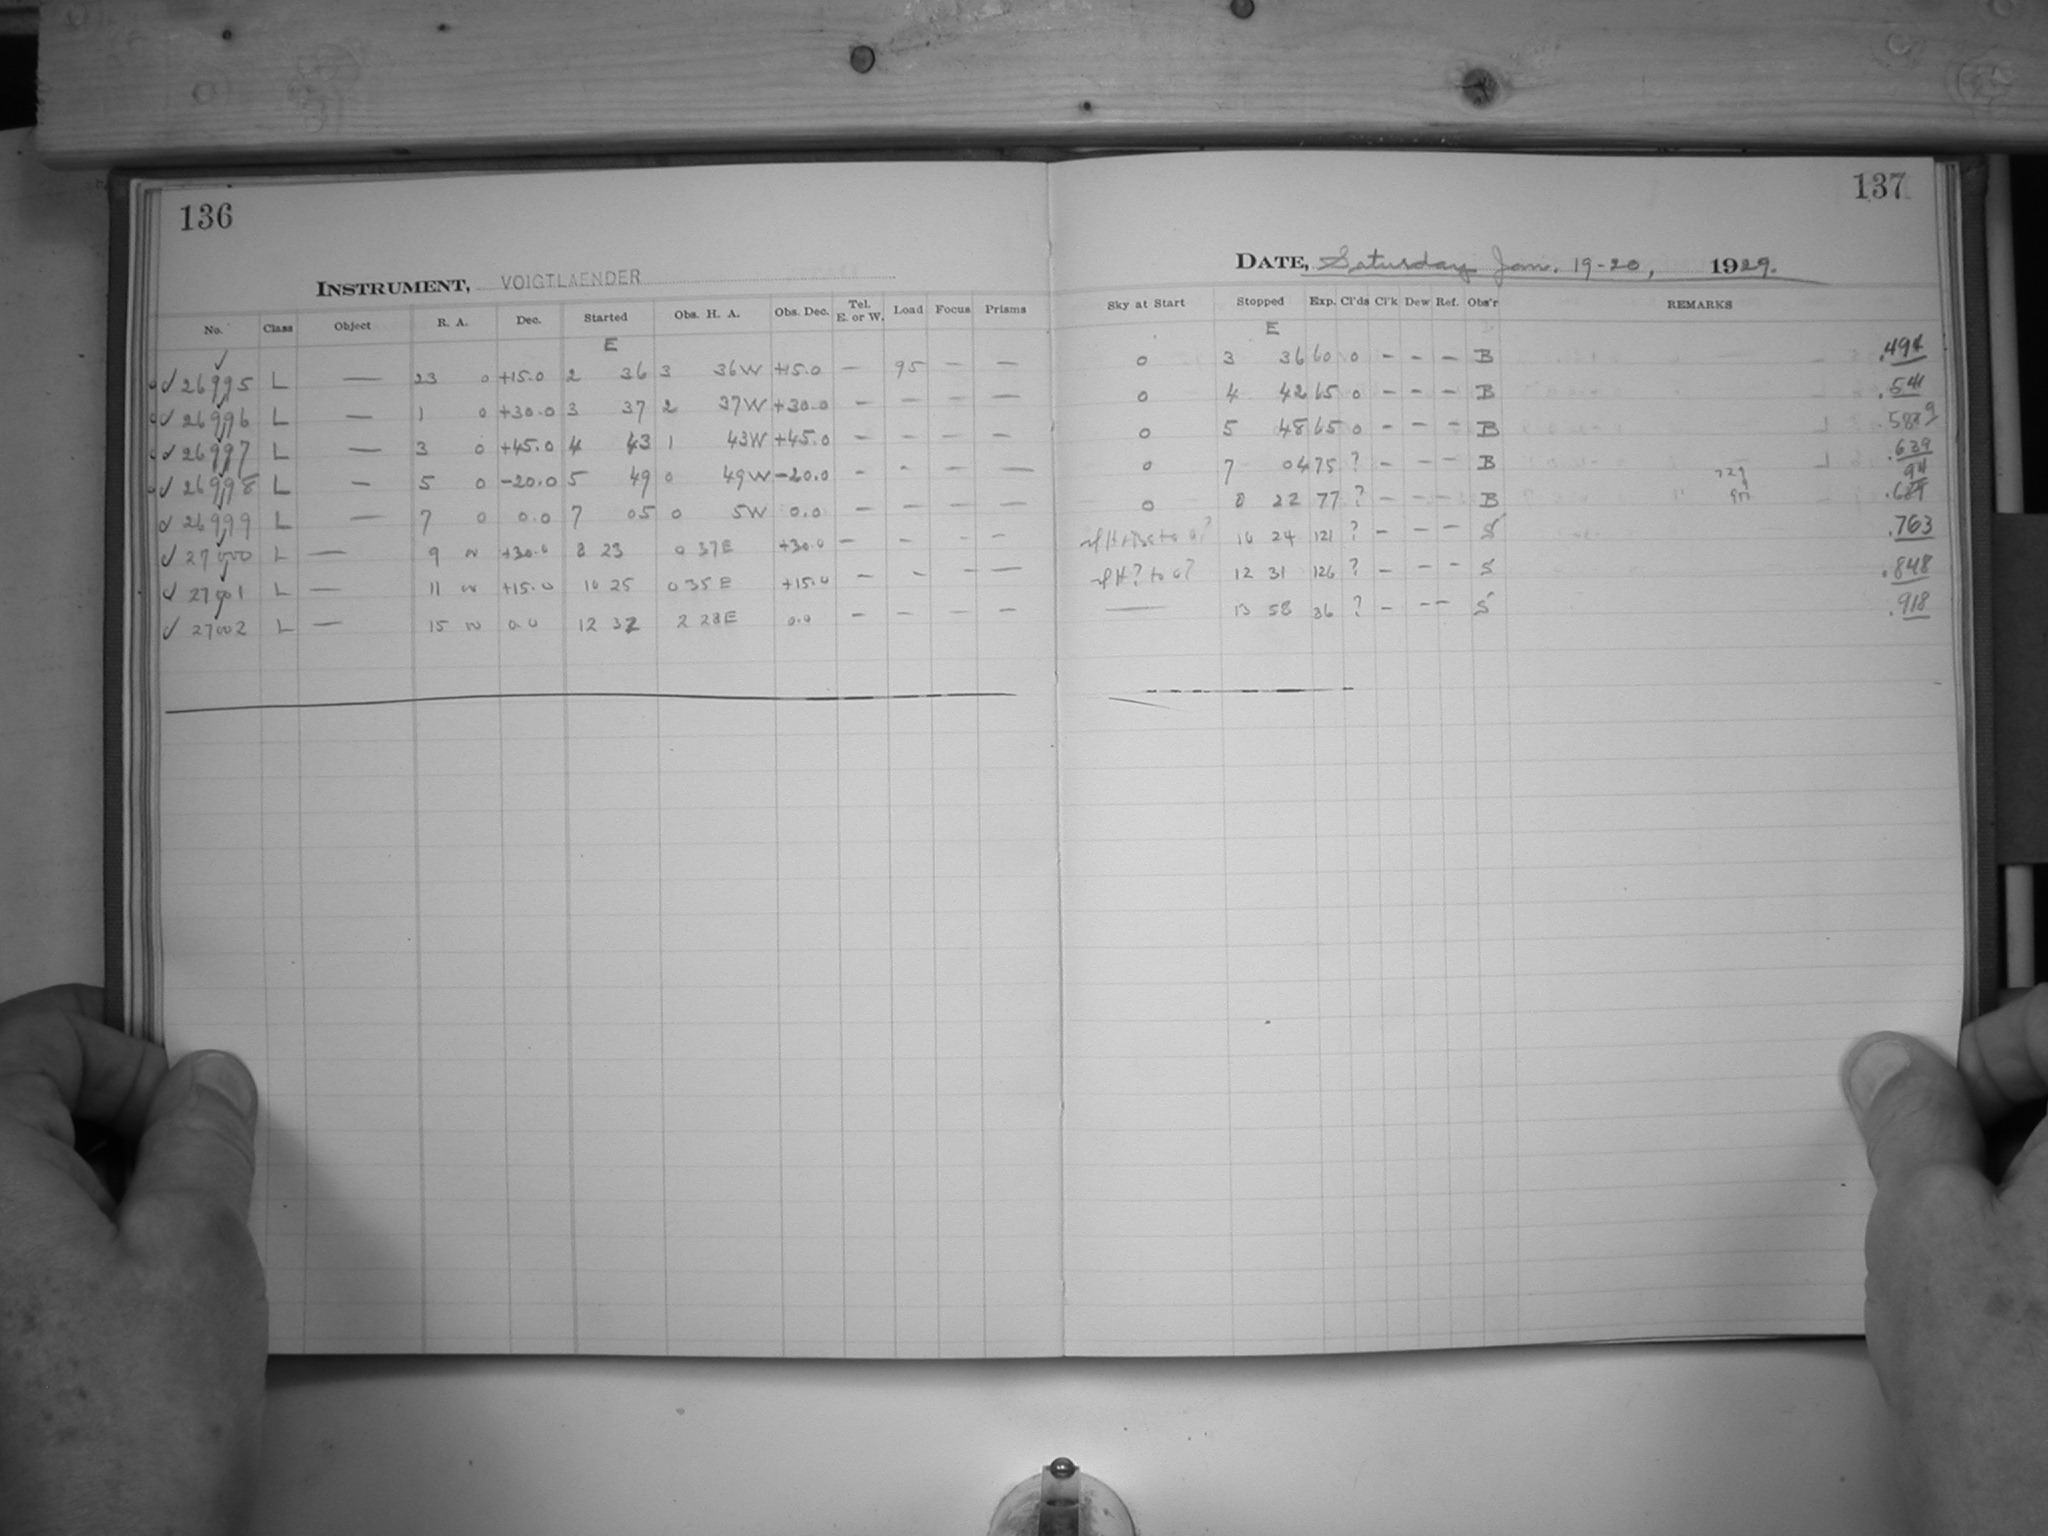 136
INSTRUMENT, VOIGTLAENDER
No. Class Object R. A. Dec. Started Obs. H. A. Obs. Dec. Tel. E. or W. Load Focus Prisms
E
✓ 26995 L — 23 0 +15.0 2 36 3 36W +15.0 — 95 — —
✓ 26996 L — 1 0 +30.0 3 37 2 37W +30.0 — — — —
✓ 26997 L — 3 0 +45.0 4 43 1 43W +45.0 — — — —
✓ 26998 L — 5 0 -20.0 5 49 0 49W -20.0 — - — —
✓ 26999 L — 7 0 0.0 7 05 0 5W 0.0 — — — —
✓ 27000 L — 9 0 +30.0 8 23 0 37E +30.0 — - - —
✓ 27001 L — 11 0 +15.0 10 25 0 35E +15.0 — - - —
✓ 27002 L — 15 0 0.0 12 32 2 28E 0.0 — — — —
137
DATE, Saturday Jan. 19-20, 1929.
Sky at Start Stopped Exp. Cl'ds Cl'k Dew Ref. Obs'r REMARKS
E
0 3 36 60 0 - - - B .494
0 4 42 65 0 - - - B .541
0 5 48 65 0 - - - B
0 7 04 75 ? - - - B .639
0 8 22 77 ? - - - B
10 24 121 ? - - - S .763
12 31 126 ? - - - S .848
— 13 58 36 ? - - - S .918